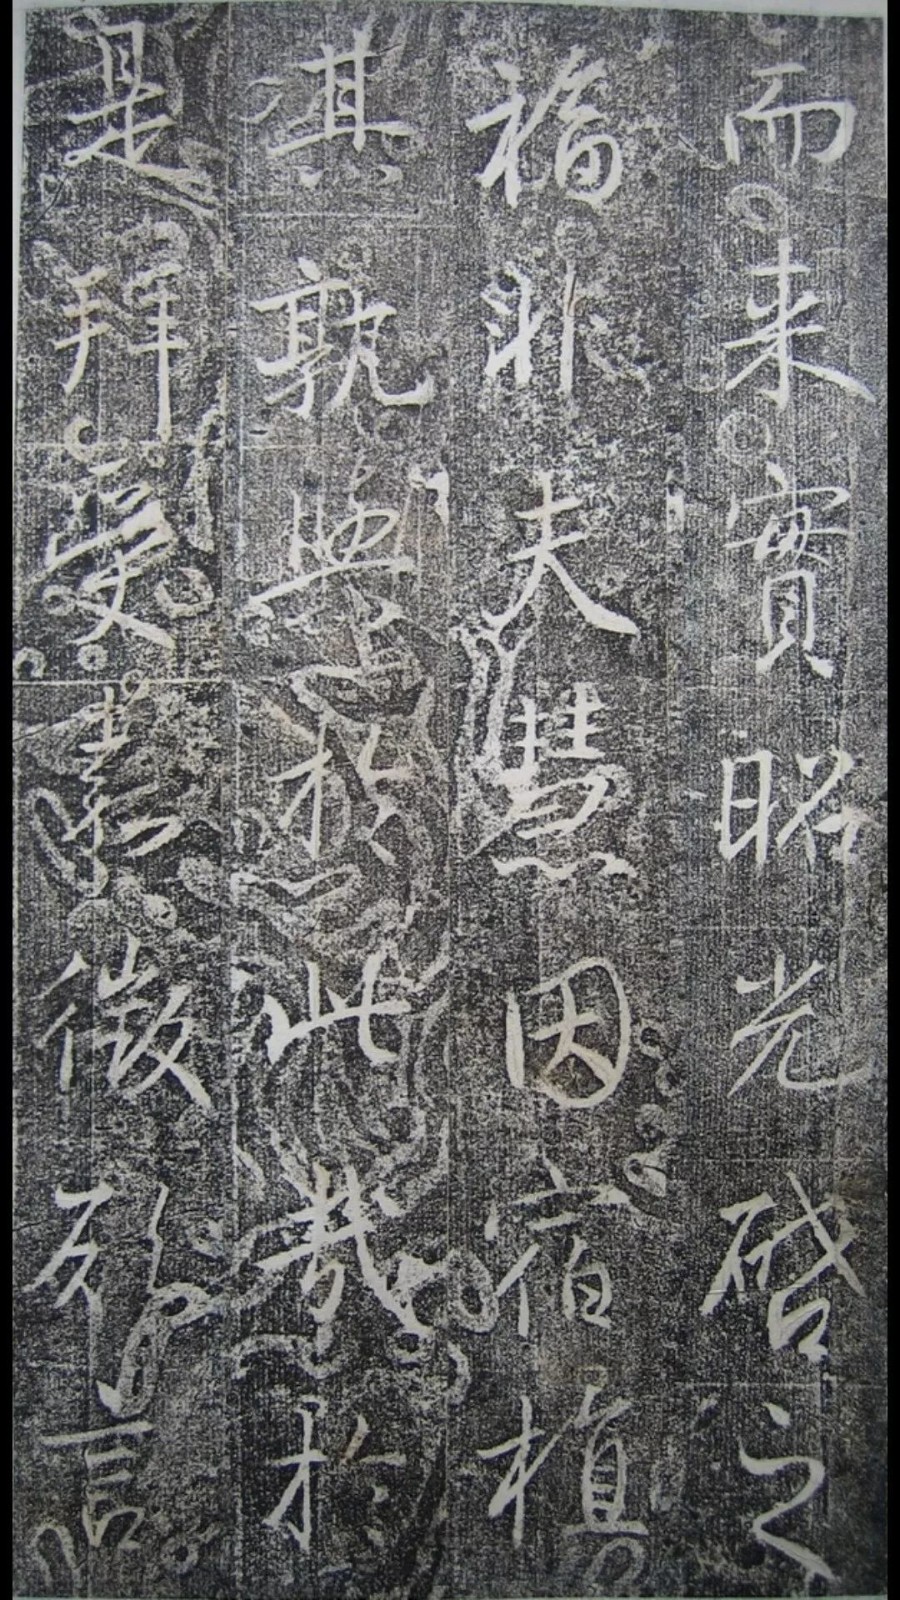 而来實昭光啓之
福非夫慧因宿植
其孰與於此哉於
是拜受徵列言